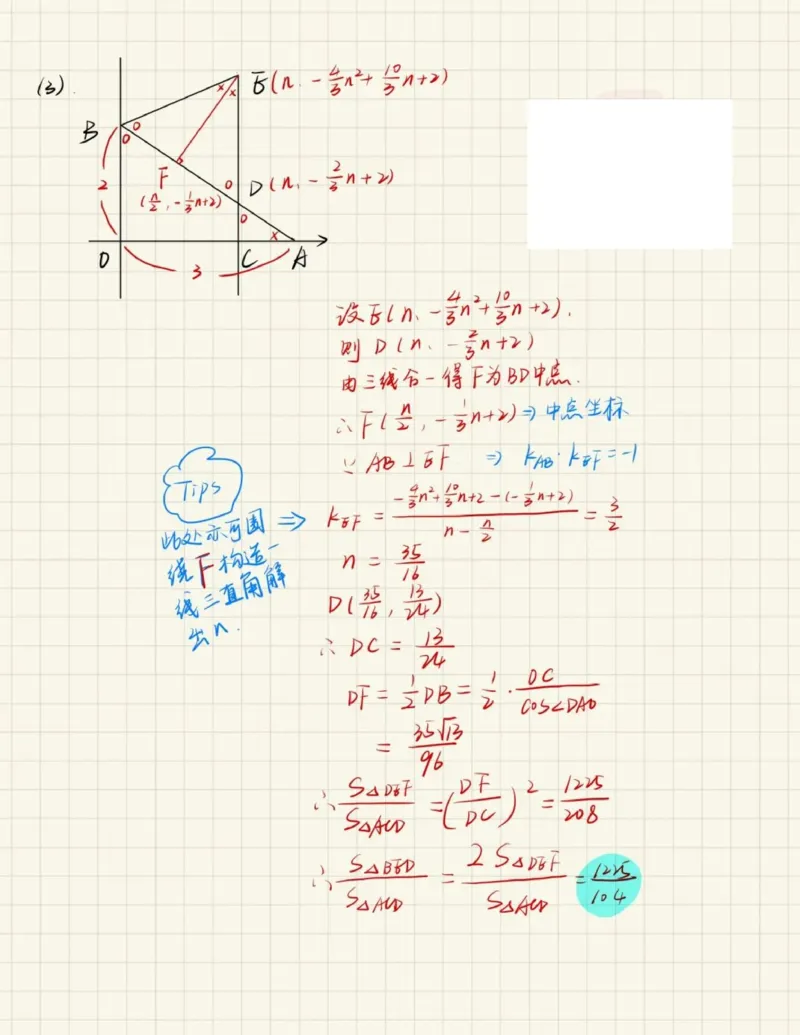 (3).
E(n, -4/3n²+10/3n+2)
B
F
(n/2, -1/3n+2)
D(n, -2/3n+2)
2
O
3
C
A
设E(n, -4/3n²+10/3n+2),
则 D(n, -2/3n+2)
由三线合一得F为BD中点.
∴F(n/2, -1/3n+2) ⇒ 中点坐标
∵ AB⊥EF ⇒ kAB·kEF=-1
Tips
此处亦可围
绕F构造一
线三直角解
出n.
⇒ kEF = (-4/3n²+10/3n+2-(-1/3n+2))/(n-n/2) = 3/2
n = 35/16
D(35/16, 13/24)
∴ DC = 13/24
DF = 1/2DB = 1/2 · OC/cos∠DAO
= 35√13/96
∴ S△DEF/S△ACD = (DF/DC)² = 1225/208
∴ S△BED/S△ACD = 2S△DEF/S△ACD = 1225/104